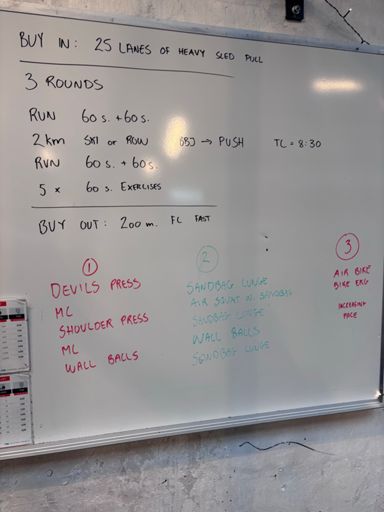 BUY IN: 25 LANES OF HEAVY SLED PULL
3 ROUNDS
RUN 60 s. + 60 s.
2 km SKI or ROW BBJ → PUSH TC = 8:30
RUN 60 s. + 60 s.
5 x 60 s. EXERCISES
BUY OUT: 200 m. FC FAST
1
DEVILS PRESS
MC
SHOULDER PRESS
MC
WALL BALLS
2
SANDBAG LUNGE
AIR SQUAT W. SANDBAG
SANDBAG LUNGE
WALL BALLS
SANDBAG LUNGE
3
AIR BIKE
BIKE ERG
INCREASING
PACE